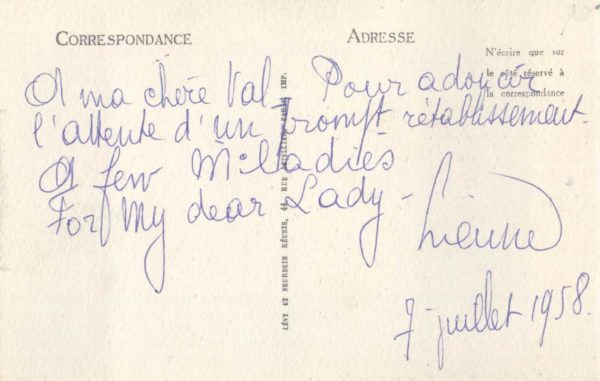 CORRESPONDANCE
ADRESSE
N'écrire que sur
le côté réservé à
la correspondance
A ma chère Val - Pour adoucir
l'attente d'un prompt rétablissement.
A few M'Ladies
For My dear Lady -
7 juillet 1958.
LÉVY ET NEURDEIN RÉUNIS, 44, RUE LETELLIER, PARIS IMP.